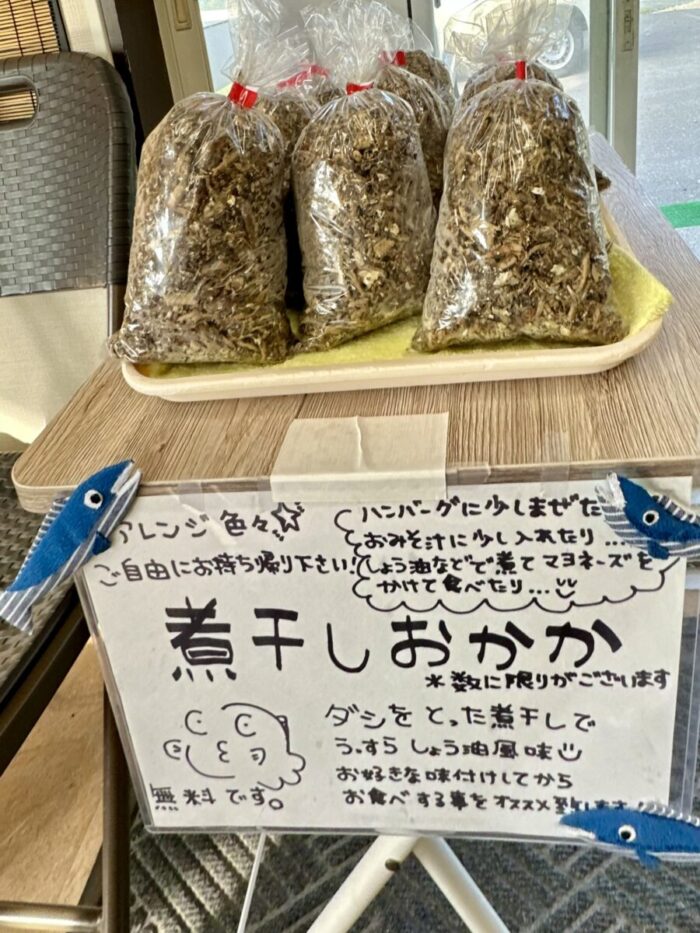 アレンジ色々☆
ご自由にお持ち帰り下さい!
ハンバーグに少しまぜた
おみそ汁に少し入れたり...
しょう油などで煮てマヨネーズを
かけて食べたり...
煮干しおかか
*数に限りがございます
ダシをとった煮干しで
うっすらしょう油風味
お好きな味付けしてから
お食べする事をオススメ致します!
無料です。